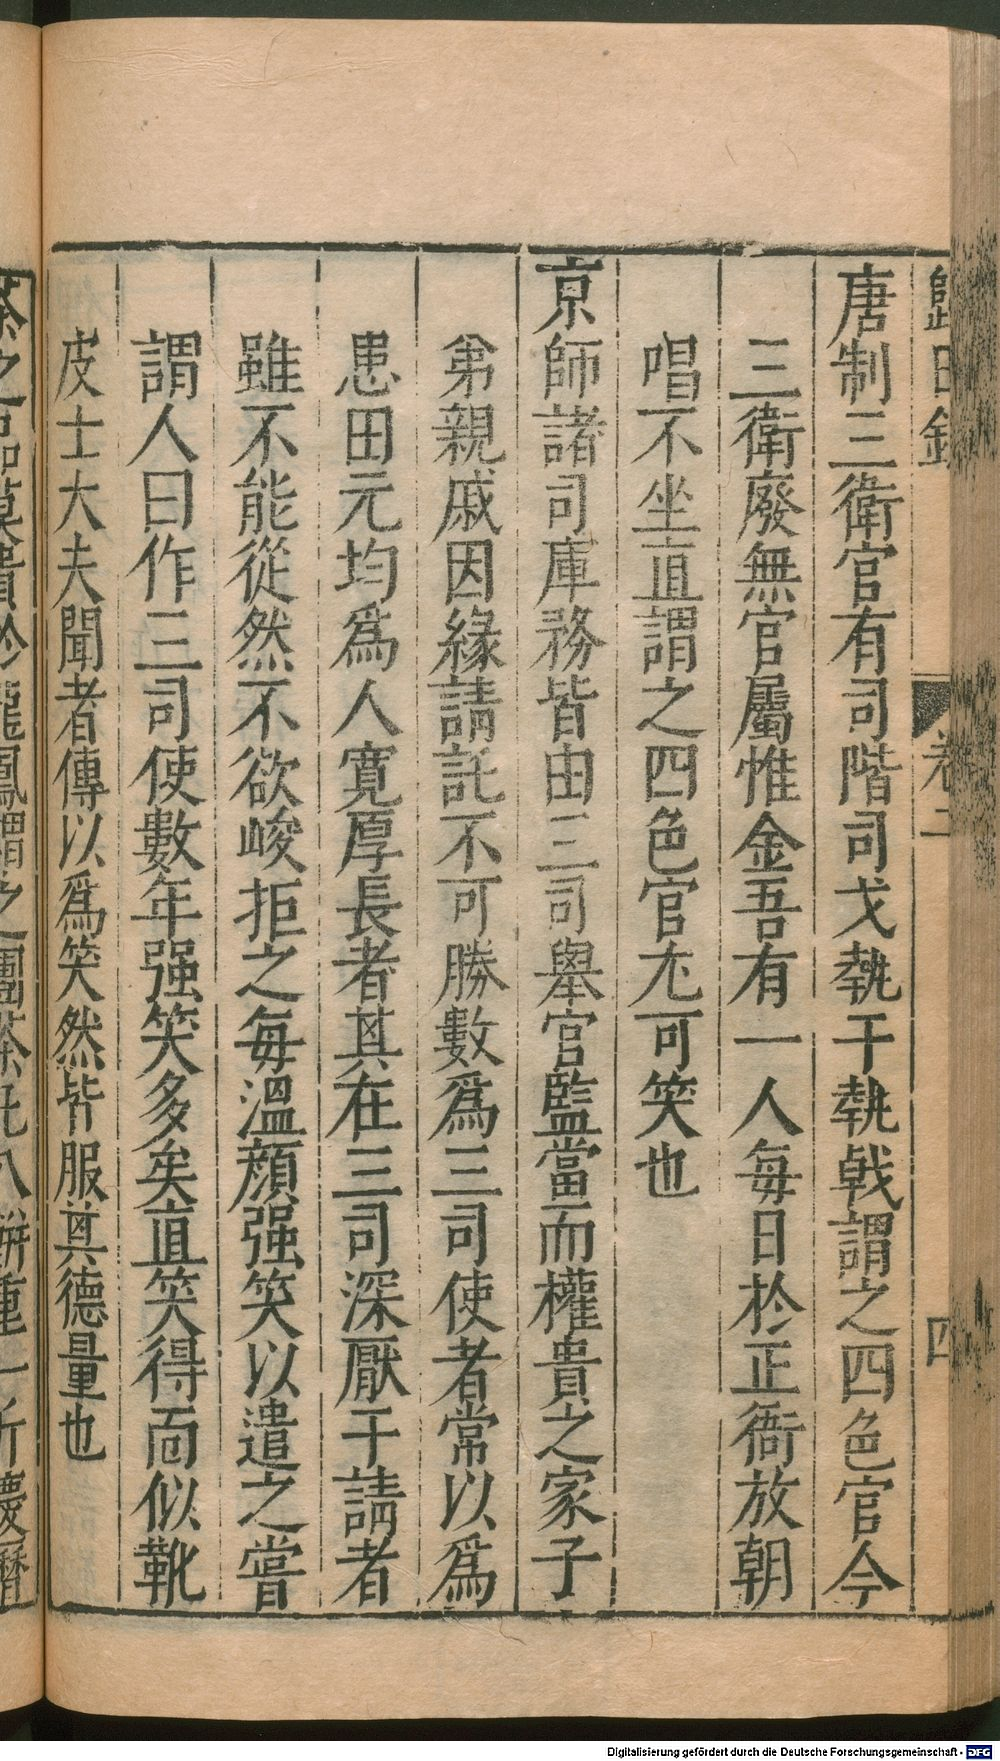 歸田錄 卷二 四
唐制三衛官有司階司戈執干執戟謂之四色官今
三衛廢無官屬惟金吾有一人每日於正衙放朝
唱不坐直謂之四色官尤可笑也
京師諸司庫務皆由三司舉官監當而權貴之家子
弟親戚因緣請託不可勝數爲三司使者常以爲
患田元均爲人寬厚長者其在三司深厭干請者
雖不能從然不欲峻拒之每溫顔强笑以遣之嘗
謂人曰作三司使數年强笑多矣直笑得面似靴
皮士大夫聞者傳以爲笑然皆服其德量也
茶之品莫貴於龍鳳謂之團茶凡八餅重一斤慶曆
Digitalisierung gefördert durch die Deutsche Forschungsgemeinschaft - DFG